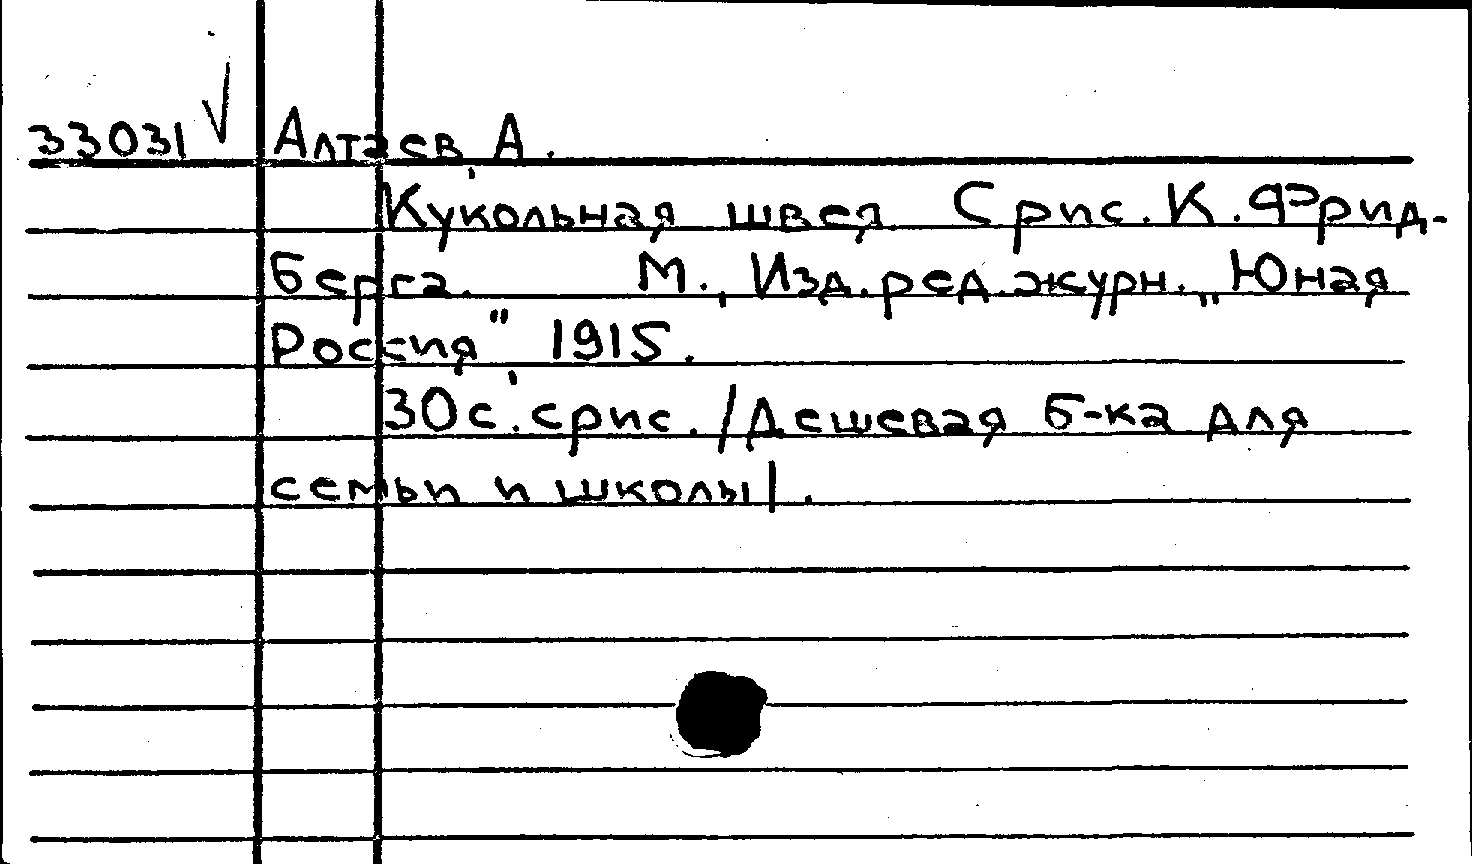 33031 Алтаев, А.
Кукольная швея. С рис. К. Фрид-
берга. М., Изд. ред. журн. „Юная
Россия", 1915.
30 с. с рис. /Дешевая б-ка для
семьи и школы/.